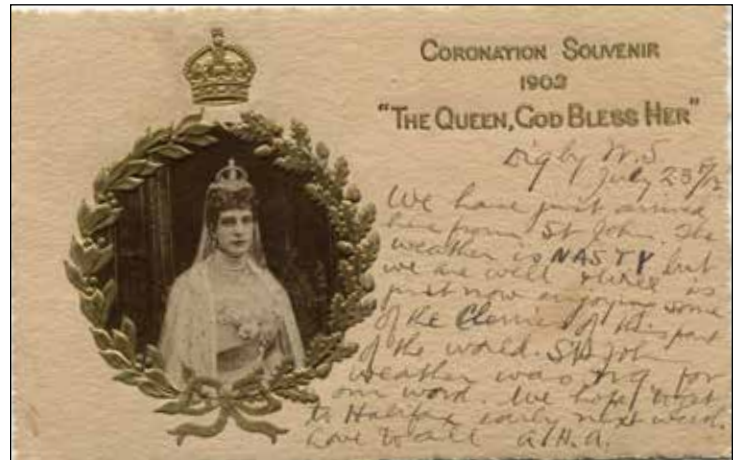 CORONATION SOUVENIR
1902
"THE QUEEN, GOD BLESS HER"
Digby N.S
July 23
We have just arrived
here from St John. The
weather is NASTY but
we are well & there is
just now enjoying some
of the Cherries of this part
of the world. St John
weather was for
our word. We hope to get
to Halifax early next week.
Love to all A.H.A.